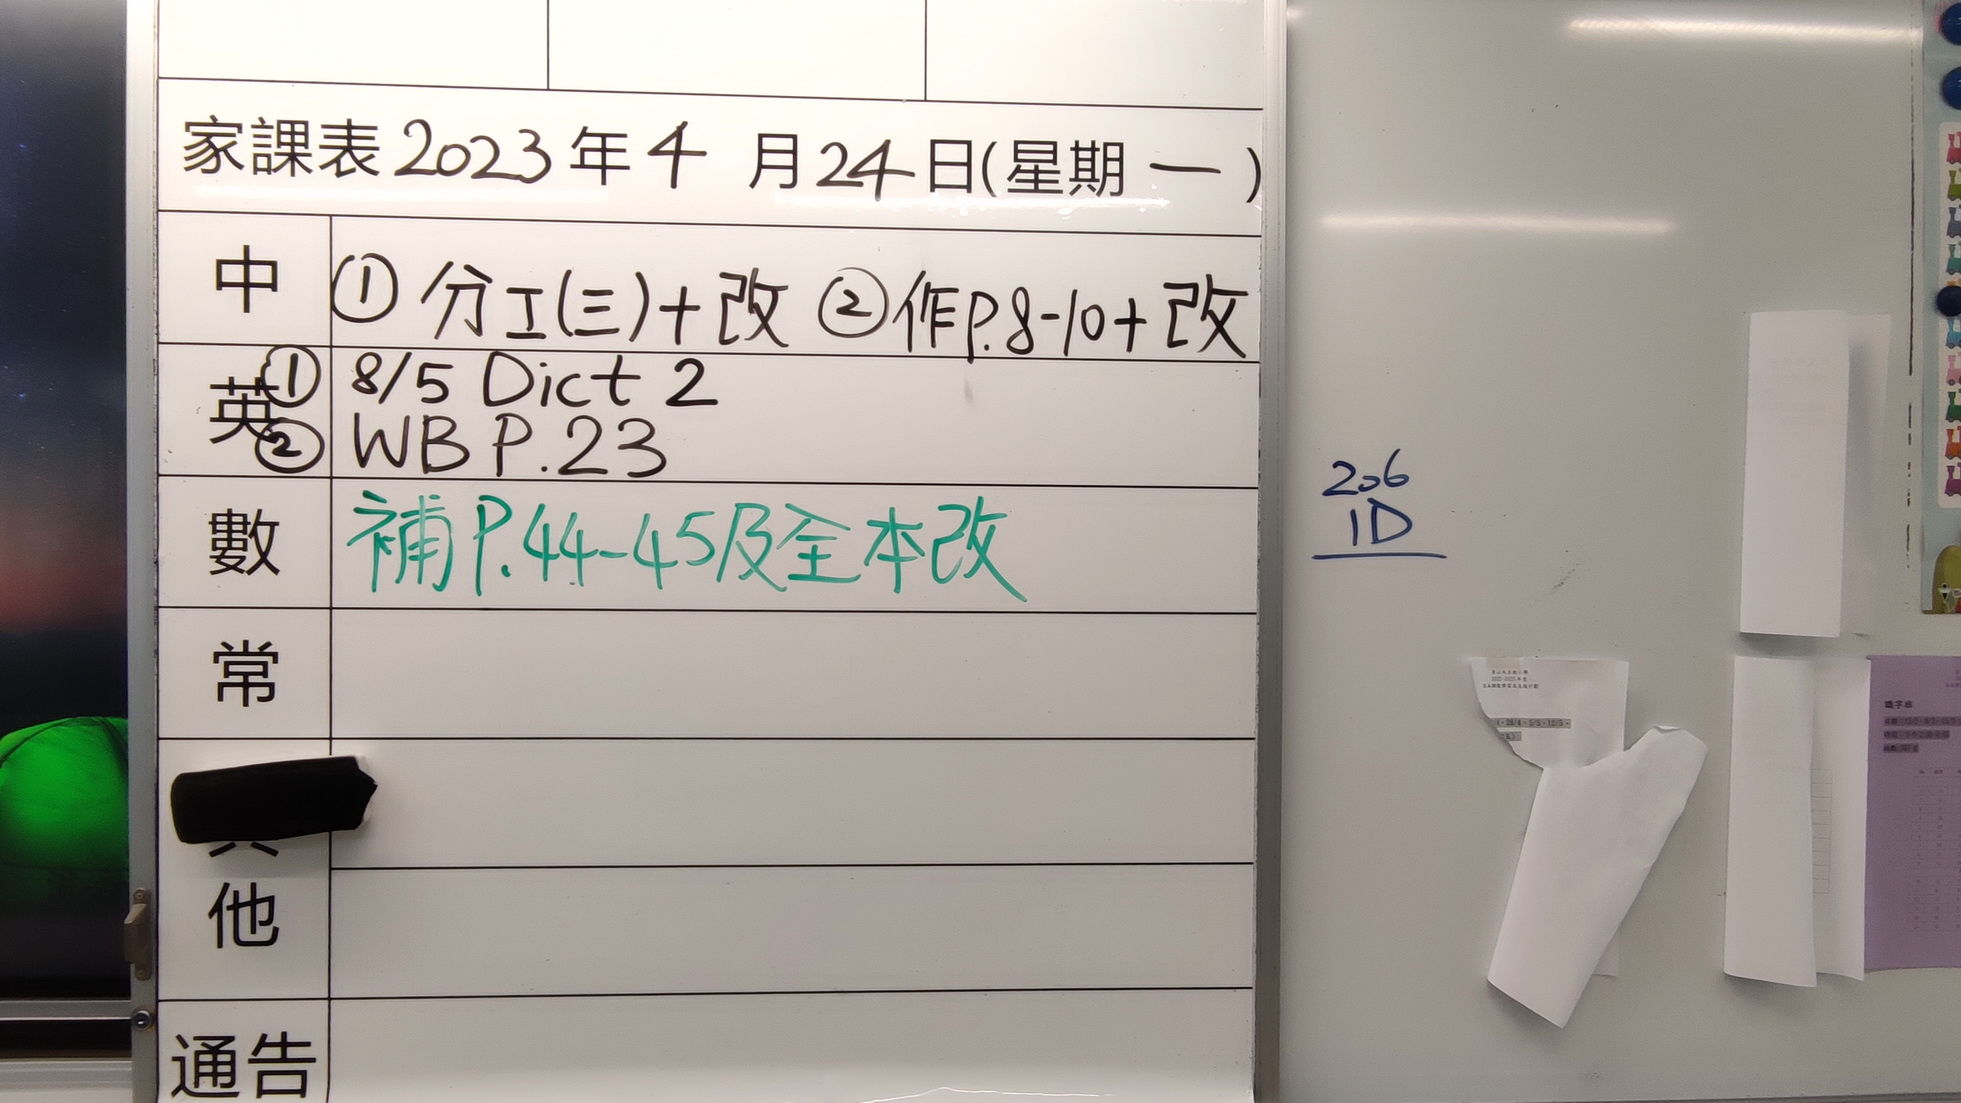 家課表2023年4月24日(星期一)
中 ①分工(三)+改 ②作P.8-10+改
英 ① 8/5 Dict 2
② WB P.23
數 補P.44-45及全本改
常
其他
通告
206
1D
識字